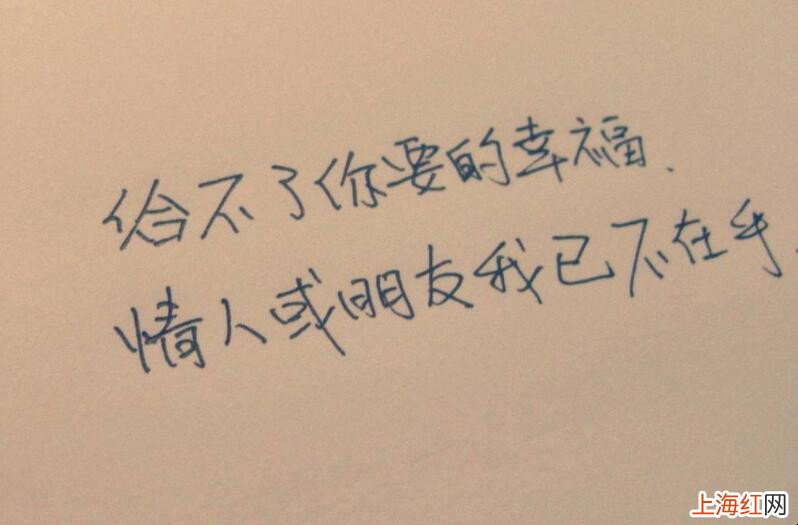 给不了你要的幸福.
情人或朋友我已不在乎.
上海红网